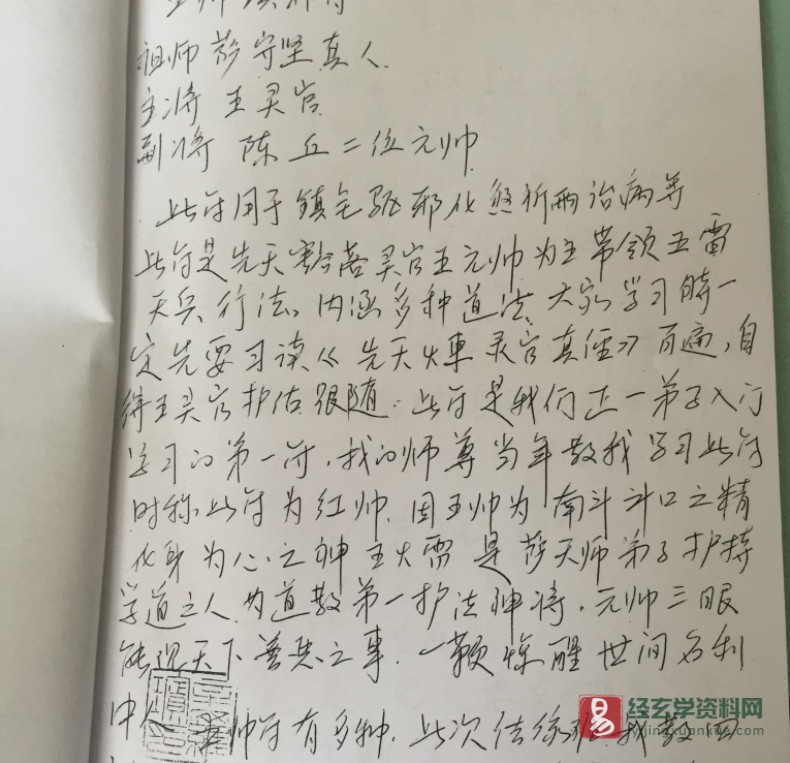 祖师 萨守坚真人
主将 王灵官
副将 陈丘二位元帅
此符用于镇宅驱邪化煞祈雨治病等
此符是先天豁落灵官王元帅为主带领五雷
天兵行法。内涵多种道法,大家学习时一
定先要习读《先天火車灵官真经》百遍,自
得王灵官护佑跟随。此符是我们正一弟子入门
学习的第一符,我的师尊当年教我学习此符
时称此符为红帅,因王帅为南斗斗口之精
化身为心之神主火雷是萨天师弟子护持
学道之人为道教第一护法神将,元帅三眼
能观天下善恶之事,一鞭惊醒世间名利
中人 帅符有多种,此次传 我教
易 经玄学资料网
yjxingxuankue.com